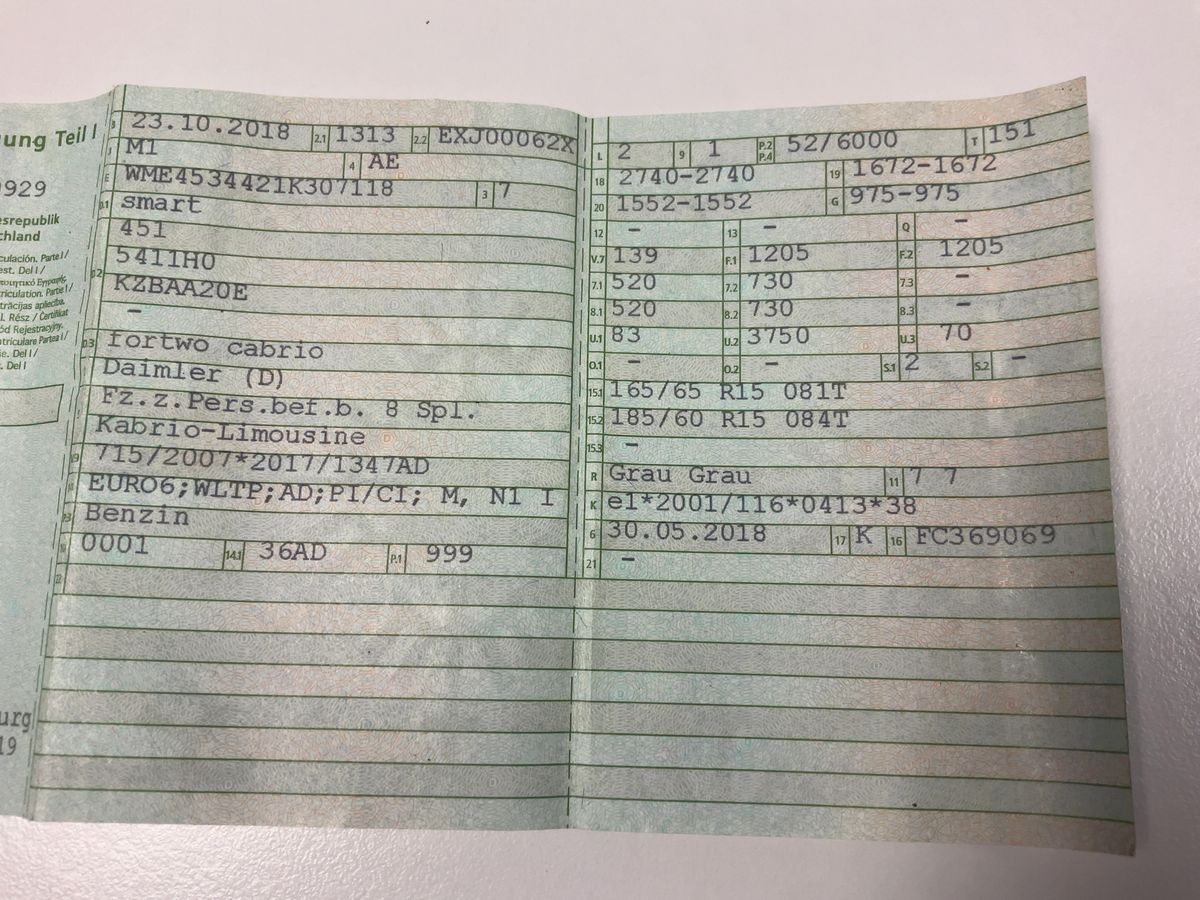 ung Teil I
9929
esrepublik
chland
culación. Parte I /
est. Del I /
riculation. Partie I /
trācijas apliecība.
I. Rész / Certifikat
ód Rejestracyjny.
atriculare Partea I /
ie. Del I /
. Del I
urg
19
B 23.10.2018 2.1 1313 2.2 EXJ00062X
J M1 4 AE
E WME4534421K307118 3 7
D.1 smart
451
D.2 5411H0
KZBAA20E
–
D.3 fortwo cabrio
Daimler (D)
Fz.z.Pers.bef.b. 8 Spl.
Kabrio-Limousine
715/2007*2017/1347AD
EURO6;WLTP;AD;PI/CI; M, N1 I
Benzin
0001 14.1 36AD P.1 999
22
L 2 9 1 P.2 P.4 52/6000 T 151
18 2740-2740 19 1672-1672
20 1552-1552 G 975-975
12 – 13 – Q –
V.7 139 F.1 1205 F.2 1205
7.1 520 7.2 730 7.3 –
8.1 520 8.2 730 8.3 –
U.1 83 U.2 3750 U.3 70
O.1 – O.2 – S.1 2 S.2 –
15.1 165/65 R15 081T
15.2 185/60 R15 084T
15.3 –
R Grau Grau 11 7 7
K e1*2001/116*0413*38
6 30.05.2018 17 K 16 FC369069
21 –